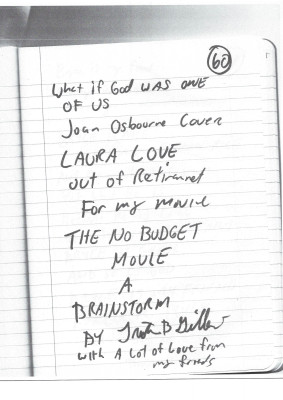 60
What if God WAS ONE
OF US
Joan Osbourne Cover
LAURA LOVE
out of Retirement
For my movie
THE NO BUDGET
MOVIE
A
BRAINSTORM
BY
with A Lot of Love from
my friends